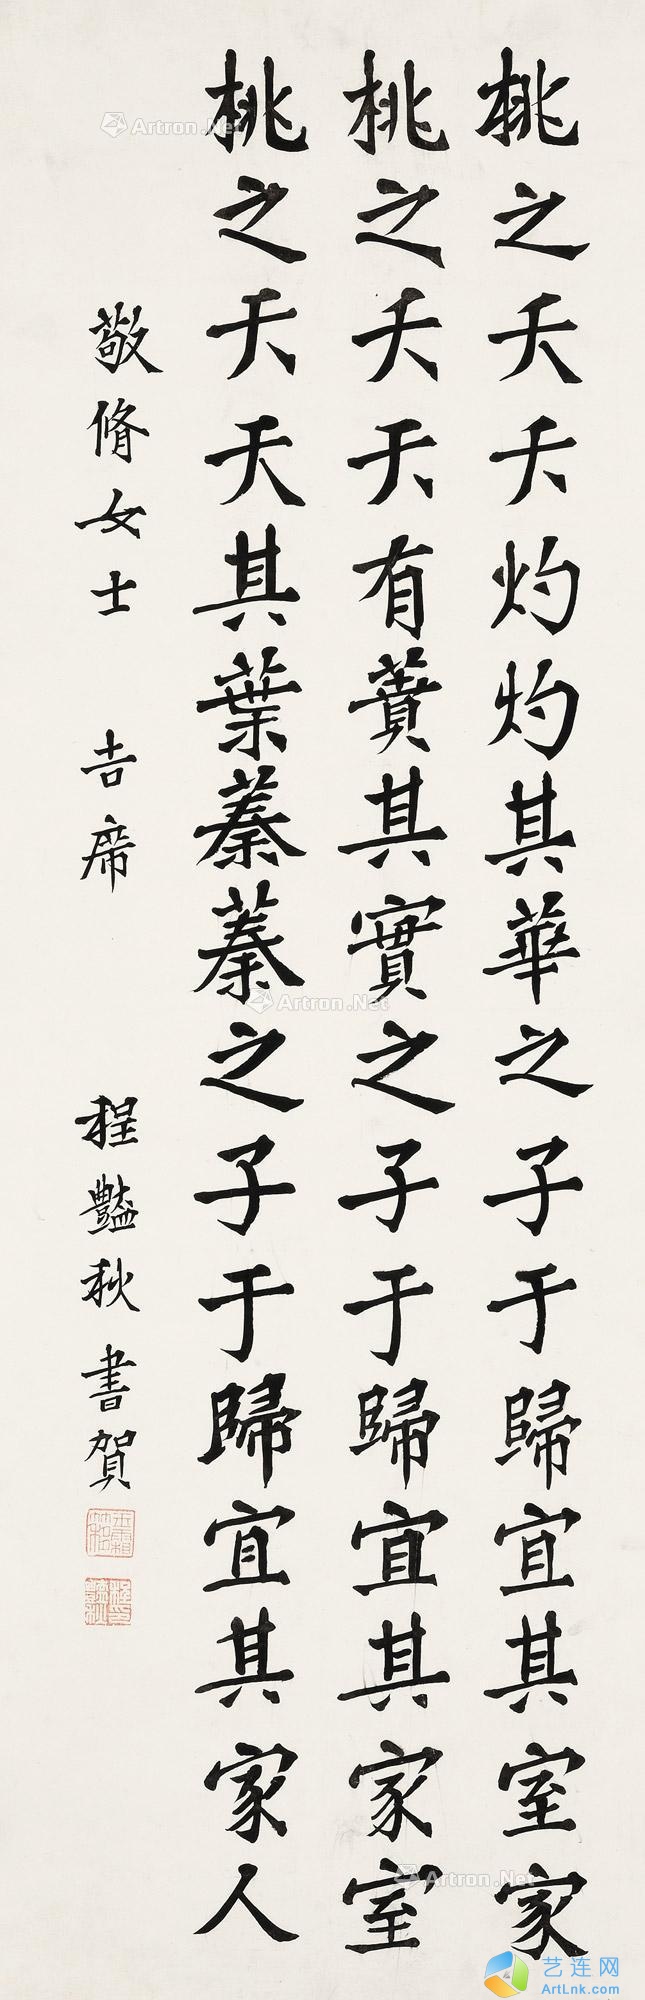 桃之夭夭灼灼其華之子于歸宜其室家
桃之夭夭有蕡其實之子于歸宜其家室
桃之夭夭其葉蓁蓁之子于歸宜其家人
敬脩女士 吉席 程豔秋書賀
玉霜簃
程豔秋印
Artron.Net
Artron.Net
Artron.Net
Artron.Net
艺连网
ArtLnk.com